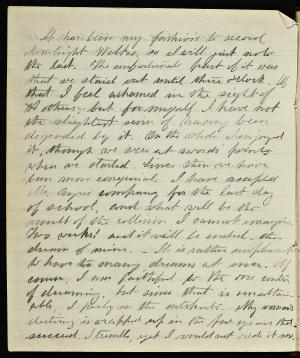 It has been my fashion to record
moonlight walks, so I will just note
the last. The important part of it was
that we staid out until three o'clock.
that I feel ashamed in the sight of
others, but for myself I have not
the slightest sense of having been
degraded by it. On the whole I enjoyed
it, though we were at swords points
when we started. Since then we have
been more congenial. I have accepted
Mr. company for the last day
of school, and what will be the
result of the collision I cannot imagine
Two weeks! and it will be ended, the
dream of mine. - It is rather unpleasant
to have too many dreams at once. Of
course, I am faithful to the one center
of dreaming, but since that is unattain
able, I on the outskirts. My
destiny is wrapped up in the four years that
succeed. I tremble, yet I would not it